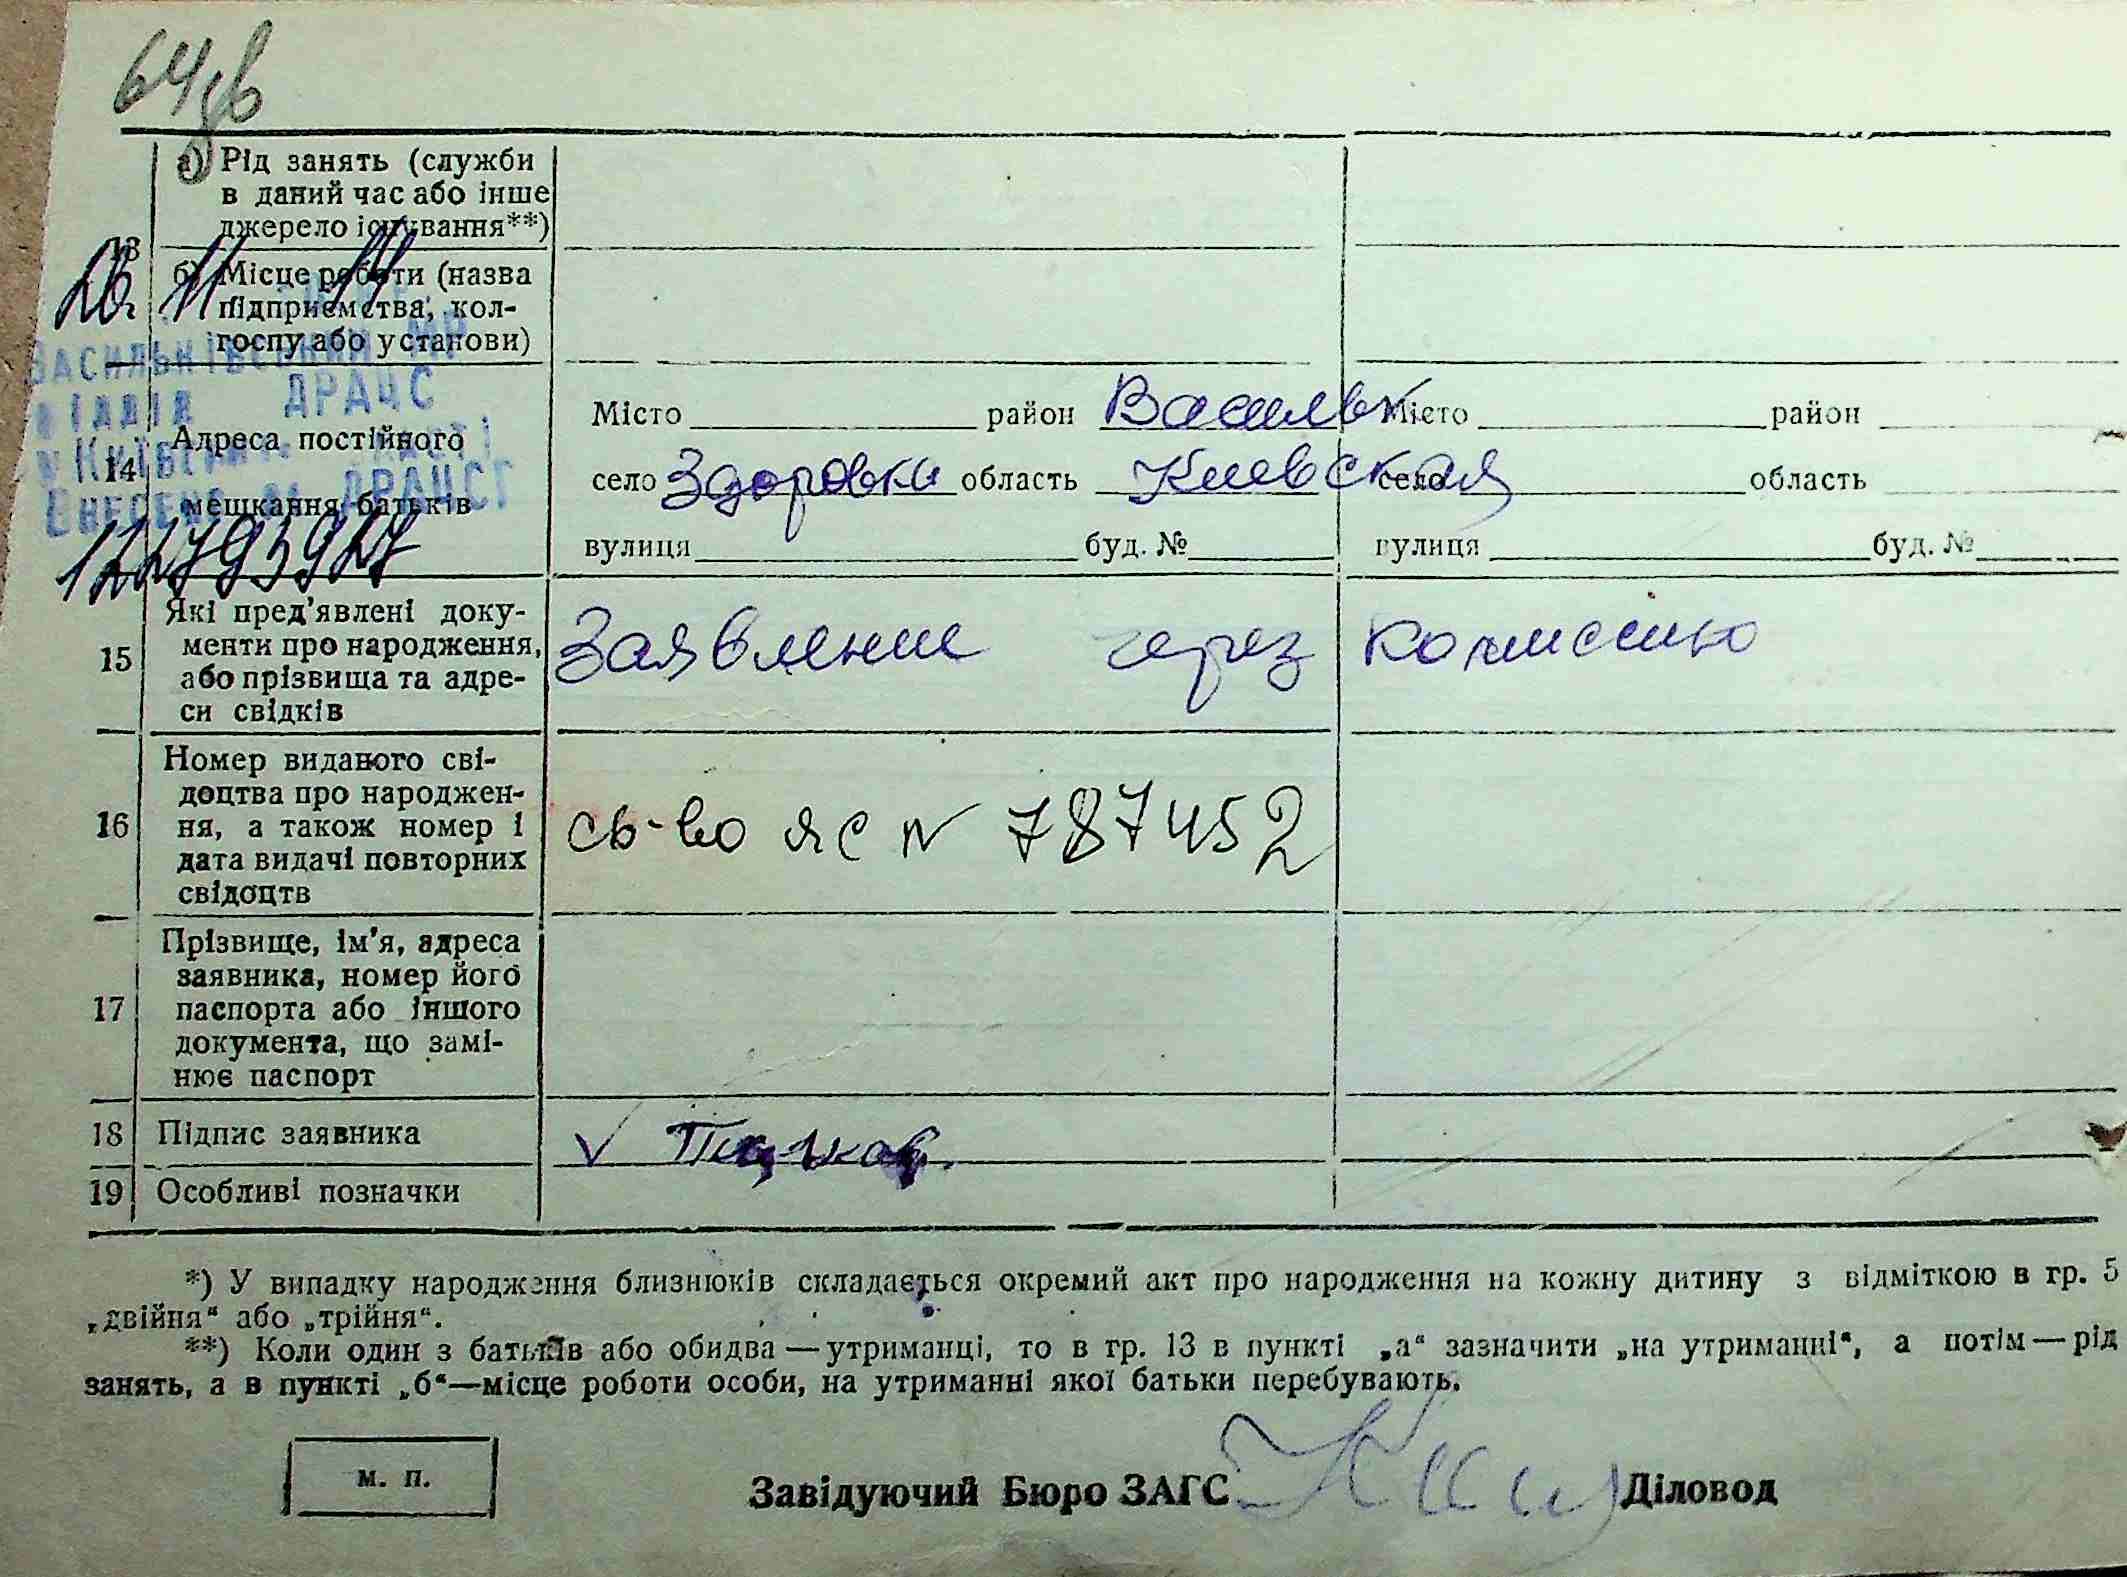 64
а) Рід занять (служби
в даний час або інше
джерело існування**)
13
26. 11 14
б) Місце роботи (назва
підприємства, кол-
госпу або установи)
ВАСИЛЬКІВСЬКИЙ МР
ВІДДІЛ ДРАЦС
14 Адреса постійного
мешкання батьків
ВНЕСЕНО ДО ДРАЦСГ
122793927
Місто район Васильк
село Здоровки область Киевская
вулиця буд. №
Місто район
село область
вулиця буд. №
15 Які пред'явлені доку-
менти про народження,
або прізвища та адре-
си свідків
Заявление через комиссию
16 Номер виданого сві-
доцтва про народжен-
ня, а також номер і
дата видачі повторних
свідоцтв
св-во яс № 787452
17 Прізвище, ім'я, адреса
заявника, номер його
паспорта або іншого
документа, що замі-
нює паспорт
18 Підпис заявника
19 Особливі позначки
*) У випадку народження близнюків складається окремий акт про народження на кожну дитину з відміткою в гр. 5
„двійня“ або „трійня“.
**) Коли один з батьків або обидва — утриманці, то в гр. 13 в пункті „а“ зазначити „на утриманні“, а потім — рід
занять, а в пункті „б“—місце роботи особи, на утриманні якої батьки перебувають.
м. п.
Завідуючий Бюро ЗАГС Діловод